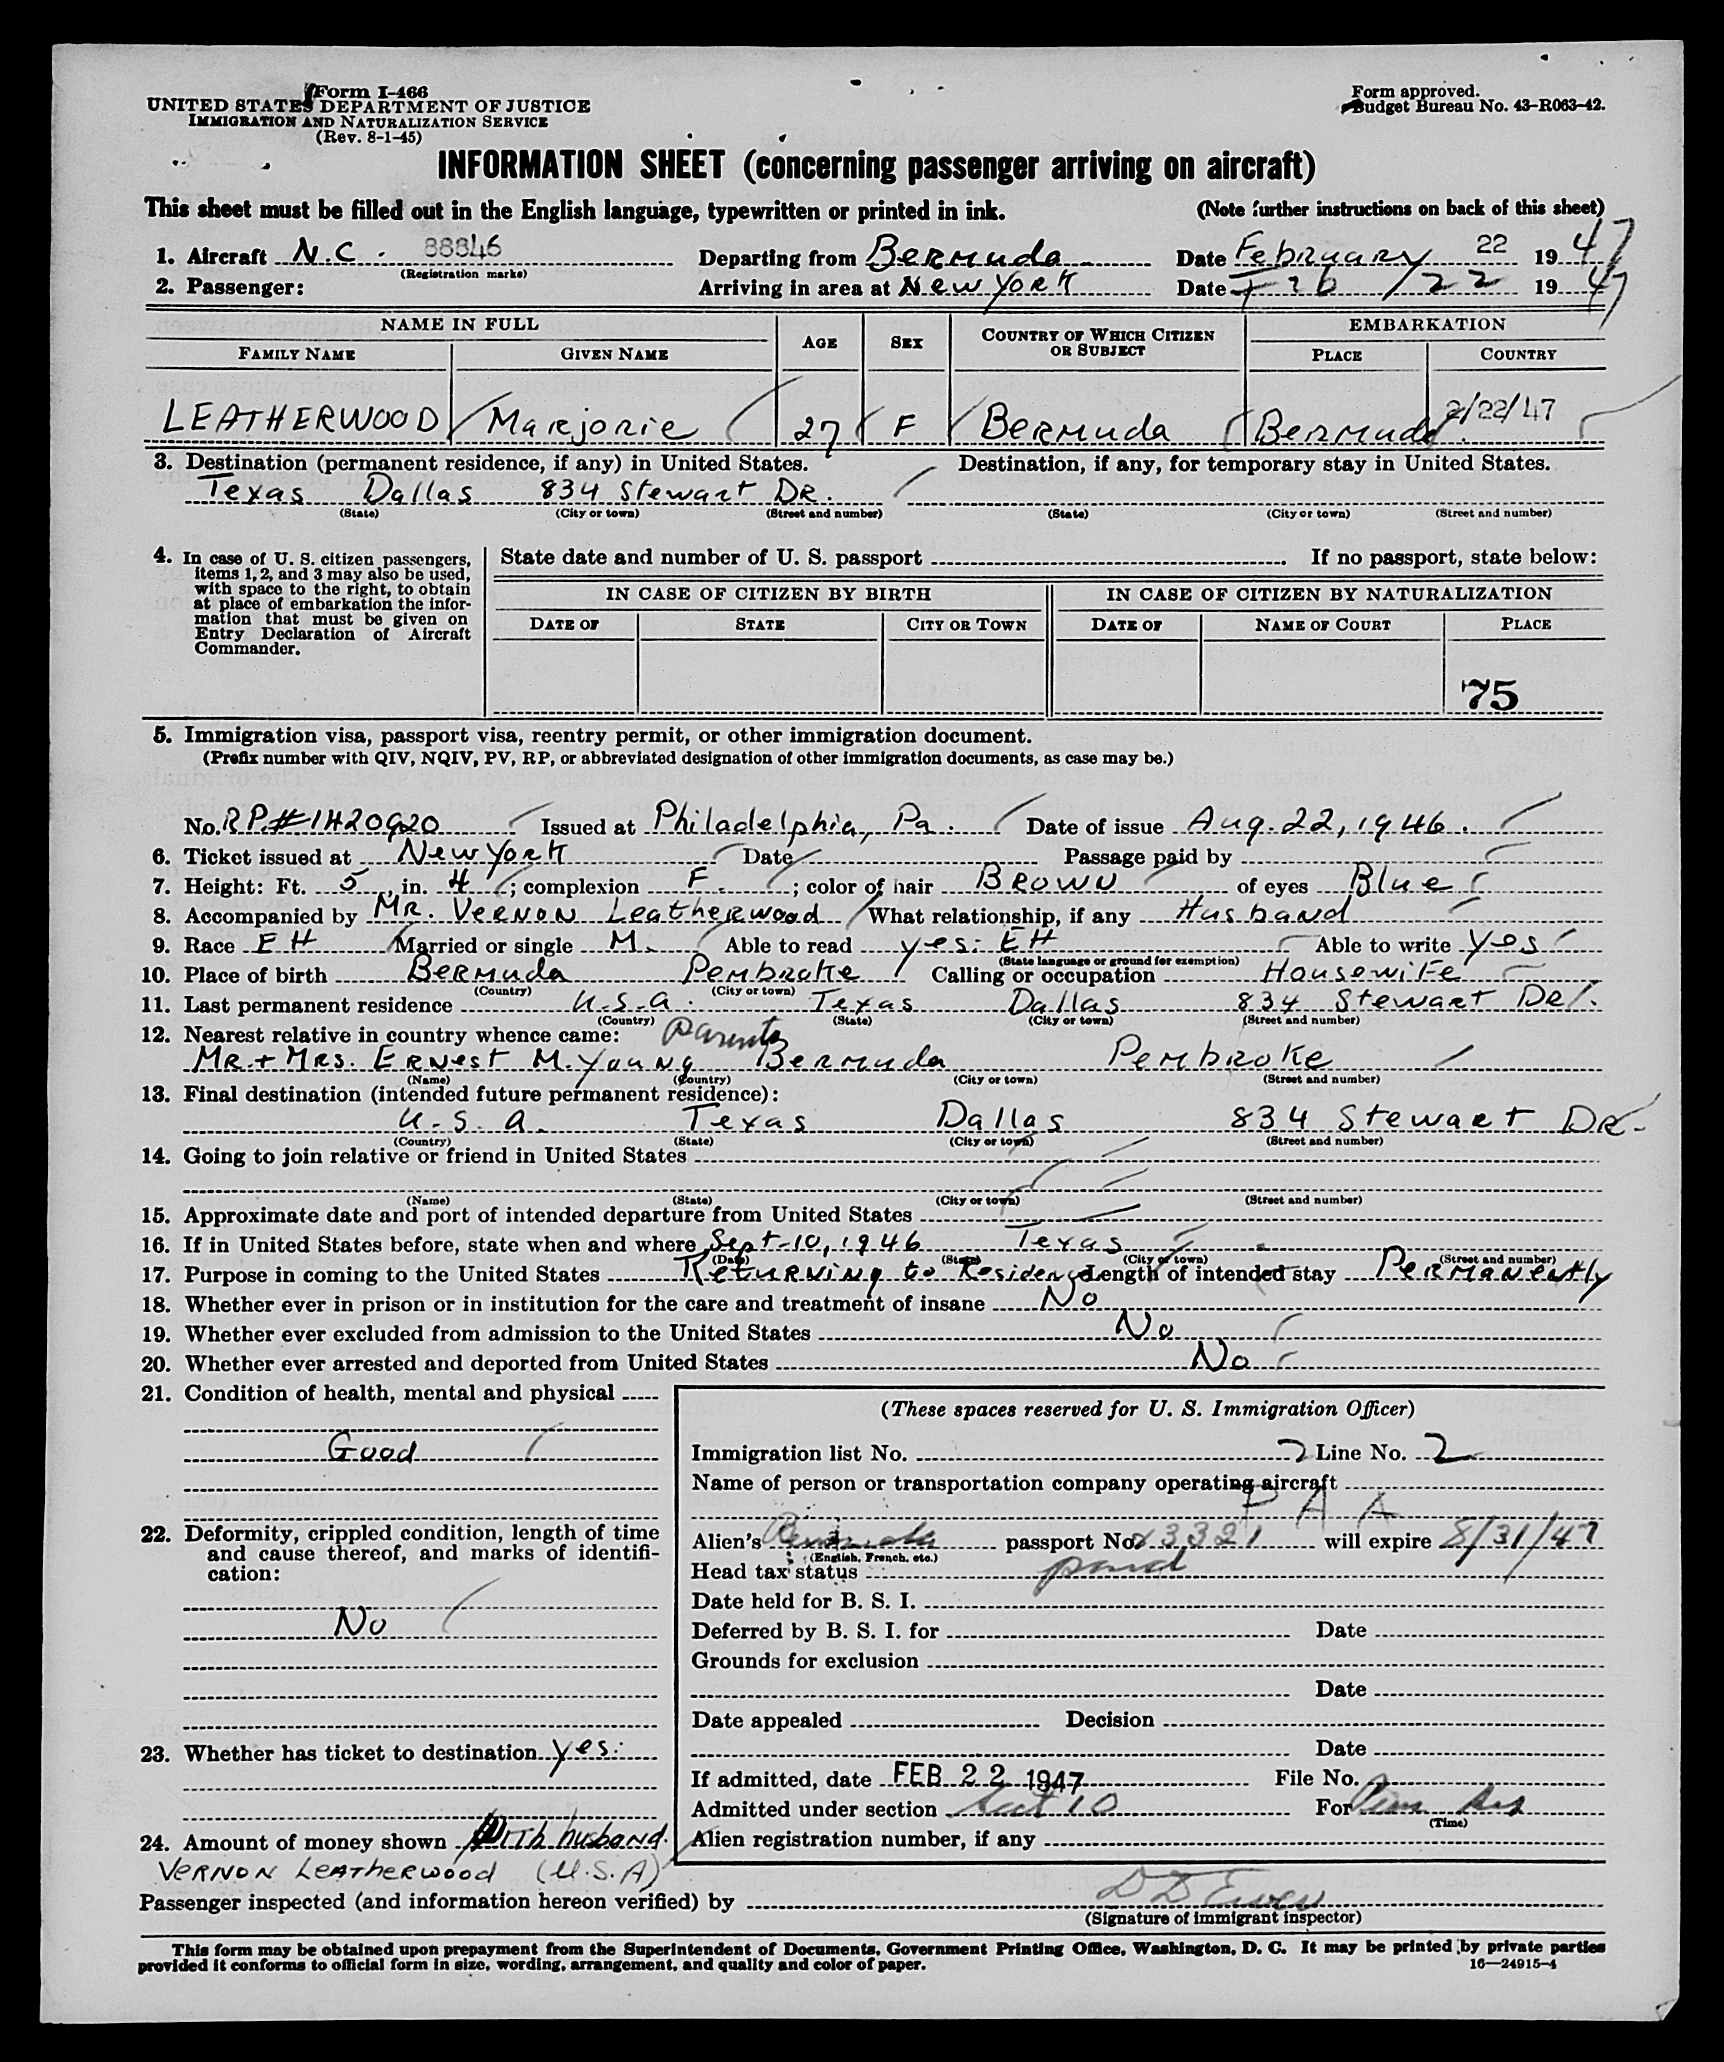 Form I-466
UNITED STATES DEPARTMENT OF JUSTICE
IMMIGRATION AND NATURALIZATION SERVICE
(Rev. 8-1-45)
Form approved.
Budget Bureau No. 43-R063-42.
INFORMATION SHEET (concerning passenger arriving on aircraft)
This sheet must be filled out in the English language, typewritten or printed in ink. (Note further instructions on back of this sheet)
1. Aircraft N.C. 88846 Departing from Bermuda Date February 22 1947
(Registration marks)
2. Passenger: Arriving in area at New York Date Feb / 22 1947
NAME IN FULL AGE SEX COUNTRY OF WHICH CITIZEN OR SUBJECT EMBARKATION
FAMILY NAME GIVEN NAME PLACE COUNTRY
LEATHERWOOD Marjorie 27 F Bermuda Bermuda 2/22/47
3. Destination (permanent residence, if any) in United States. Destination, if any, for temporary stay in United States.
Texas Dallas 834 Stewart DR.
(State) (City or town) (Street and number) (State) (City or town) (Street and number)
4. In case of U. S. citizen passengers, items 1, 2, and 3 may also be used, with space to the right, to obtain at place of embarkation the information that must be given on Entry Declaration of Aircraft Commander.
State date and number of U. S. passport . If no passport, state below:
IN CASE OF CITIZEN BY BIRTH IN CASE OF CITIZEN BY NATURALIZATION
DATE OF STATE CITY OR TOWN DATE OF NAME OF COURT PLACE
75
5. Immigration visa, passport visa, reentry permit, or other immigration document.
(Prefix number with QIV, NQIV, PV, RP, or abbreviated designation of other immigration documents, as case may be.)
No. RP.#1420920 Issued at Philadelphia, Pa. Date of issue Aug. 22, 1946.
6. Ticket issued at New York Date Passage paid by
7. Height: Ft. 5, in. 4; complexion F.; color of hair Brown of eyes Blue
8. Accompanied by MR. Vernon Leatherwood What relationship, if any Husband
9. Race EH Married or single M. Able to read yes: EH Able to write Yes
(State language or ground for exemption)
10. Place of birth Bermuda Pembroke Calling or occupation Housewife
(Country) (City or town)
11. Last permanent residence U.S.A. Texas Dallas 834 Stewart DR.
(Country) (State) (City or town) (Street and number)
12. Nearest relative in country whence came: Parents
MR. + MRS. Ernest M. Young Bermuda Pembroke
(Name) (Country) (City or town) (Street and number)
13. Final destination (intended future permanent residence):
U.S.A. Texas Dallas 834 Stewart DR.
(Country) (State) (City or town) (Street and number)
14. Going to join relative or friend in United States
(Name) (State) (City or town) (Street and number)
15. Approximate date and port of intended departure from United States
16. If in United States before, state when and where Sept-10, 1946 Texas
(Date) (State) (City or town) (Street and number)
17. Purpose in coming to the United States Returning to Residence Length of intended stay Permanently
18. Whether ever in prison or in institution for the care and treatment of insane No
19. Whether ever excluded from admission to the United States No
20. Whether ever arrested and deported from United States No
21. Condition of health, mental and physical
Good
22. Deformity, crippled condition, length of time and cause thereof, and marks of identification:
No
23. Whether has ticket to destination yes.
24. Amount of money shown With husband.
VERNON LEATHERWOOD (U.S.A)
(These spaces reserved for U. S. Immigration Officer)
Immigration list No. 7 Line No. 2
Name of person or transportation company operating aircraft
P A A
Alien's Bermuda passport No. 3321 will expire 8/31/47
(English, French, etc.)
Head tax status paid
Date held for B. S. I.
Deferred by B. S. I. for Date
Grounds for exclusion
Date
Date appealed Decision
Date
If admitted, date FEB 22 1947 File No.
Admitted under section Sect 10 For
(Time)
Alien registration number, if any
Passenger inspected (and information hereon verified) by
(Signature of immigrant inspector)
This form may be obtained upon prepayment from the Superintendent of Documents, Government Printing Office, Washington, D. C. It may be printed by private parties
provided it conforms to official form in size, wording, arrangement, and quality and color of paper. 16—24915-4